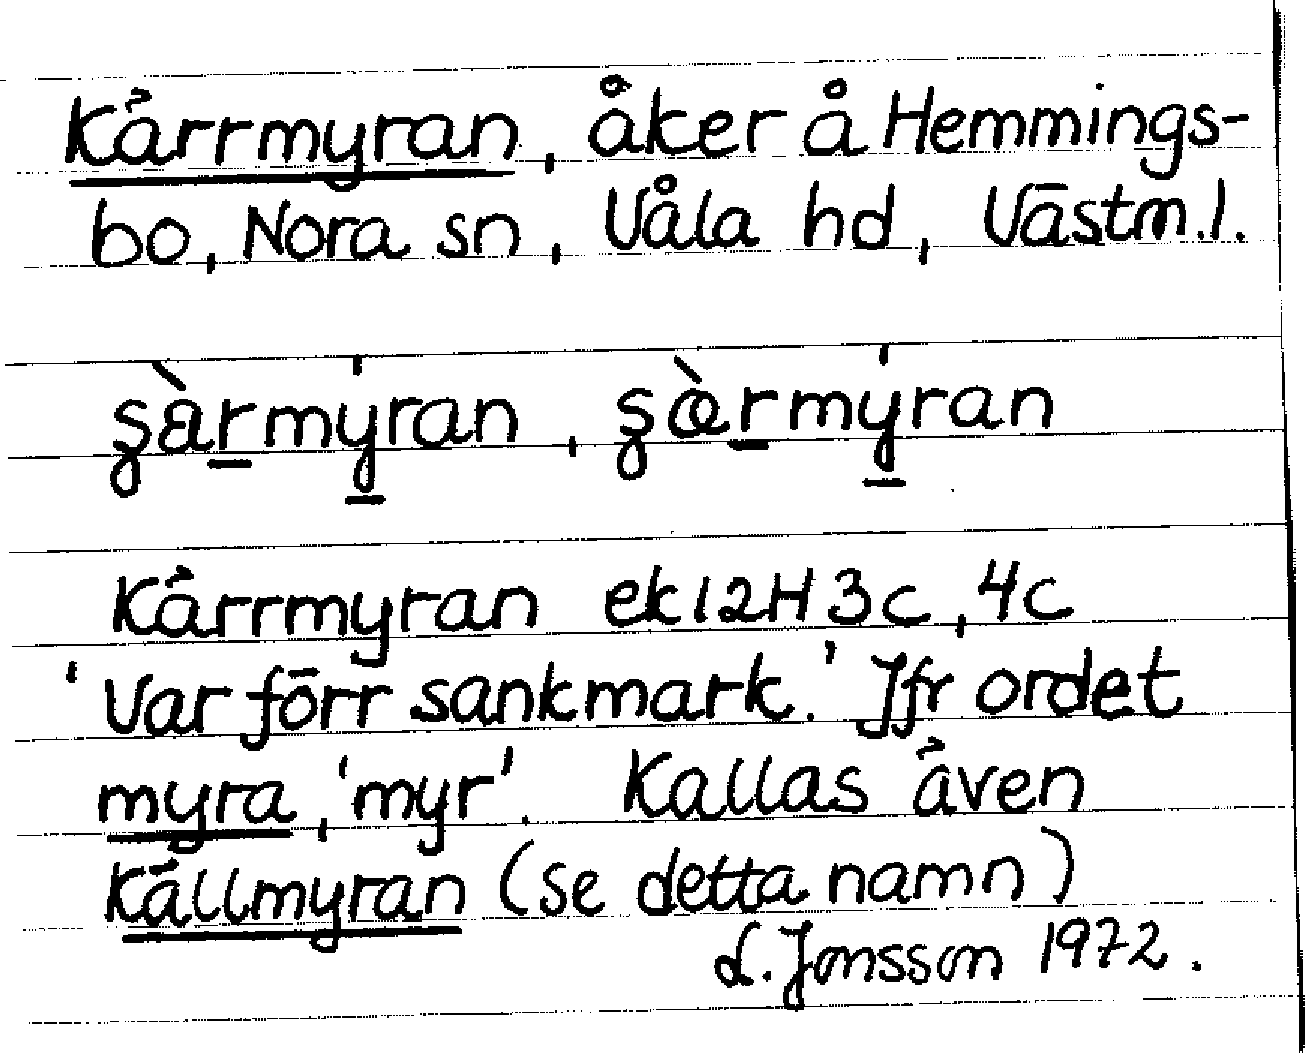 Kärrmyran, åker å Hemmings-
bo, Nora sn, Våla hd, Västm.l.
ʂàrmýran, ʂæ̀rmýran
Kärrmyran ek 12H 3c, 4c
'Var förr sankmark.' Jfr ordet
myra, 'myr'. Kallas även
Källmyran (se detta namn)
L. Jonsson 1972.